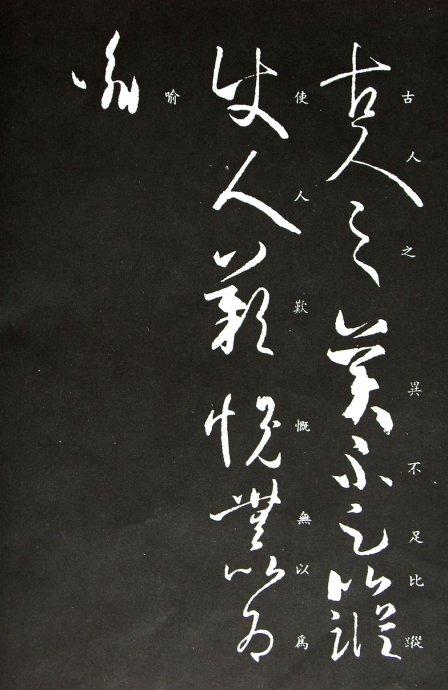 古人之異不足比蹤
古人之異不足比蹤
使人歎慨無以為
使人歎慨無以為
喻
喻